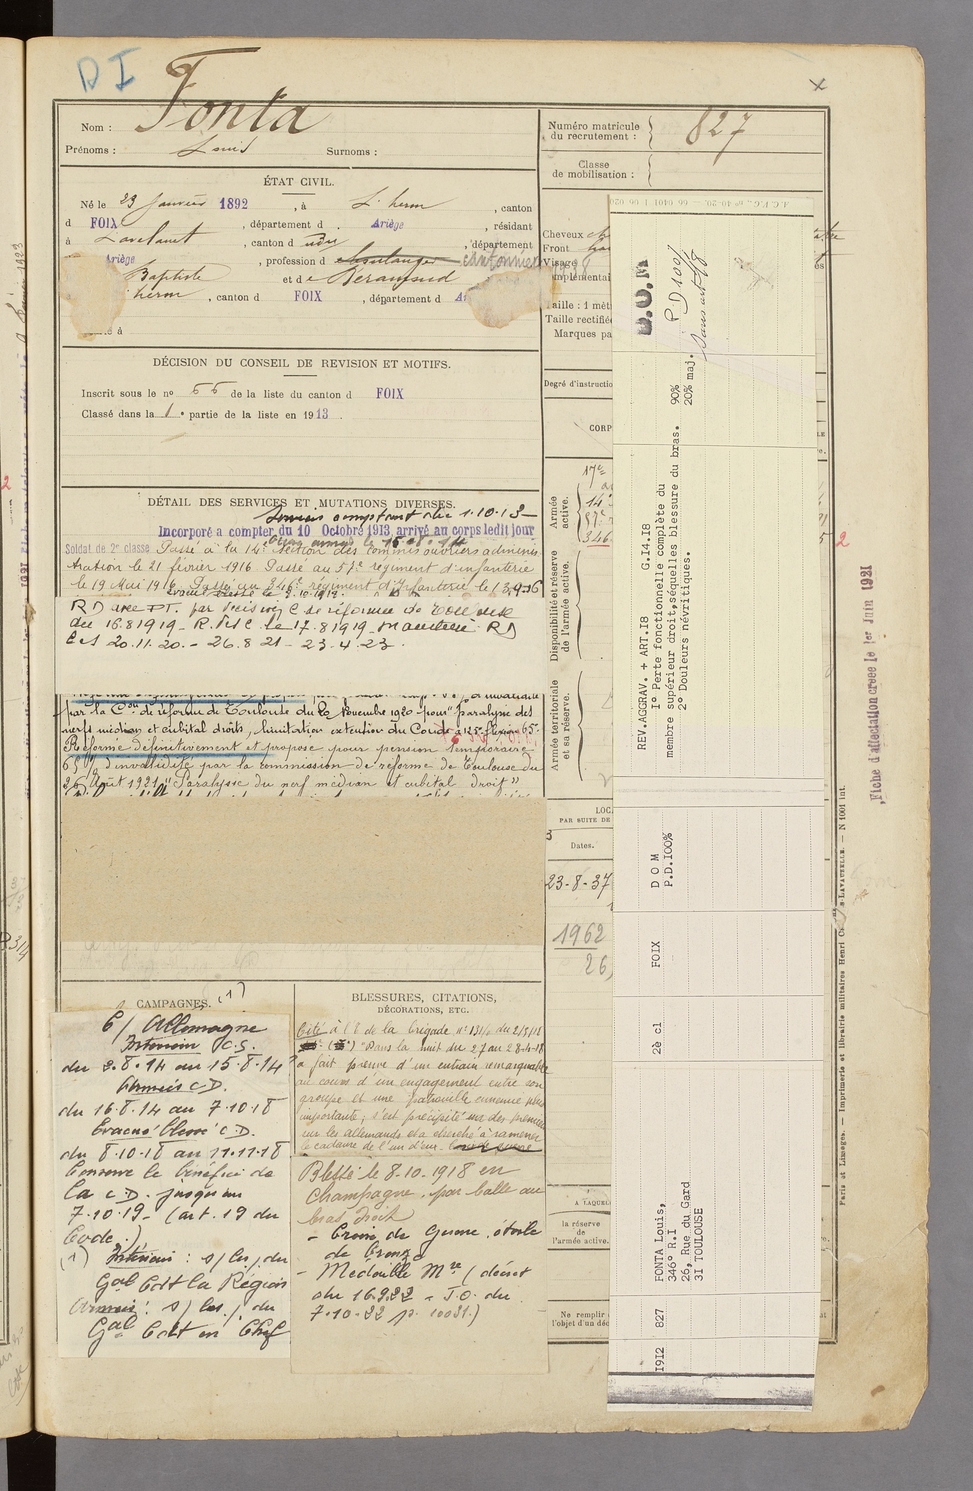 D I
Fonta
Nom :
Prénoms : Louis Surnoms :
Numéro matricule du recrutement : 827
Classe de mobilisation :
ÉTAT CIVIL.
Né le 23 Janvier 1892, à L'herm, canton
d FOIX, département d Ariège, résidant
à Lavelanet, canton d udu, département
Ariège, profession d boulanger cantonnier
Baptiste et de Peramaud
herm, canton d FOIX, département d
à
Cheveux
Front
Visage
Taille : 1 mèt
Taille rectifiée
Marques pa
Degré d'instructio
DÉCISION DU CONSEIL DE REVISION ET MOTIFS.
Inscrit sous le no 55 de la liste du canton d FOIX
Classé dans la 1e partie de la liste en 1913
DÉTAIL DES SERVICES ET MUTATIONS DIVERSES.
Services comptant du 1.10.13
Incorporé a compter du 10 Octobre 1913 arrivé au corps ledit jour
Soldat de 2e classe Passé à la 14e Section des commis ouvriers adminis
tration le 21 février 1916 Passé au 57e régiment d'infanterie
le 19 Mai 1916 Passé au 346e régiment d'Infanterie le 13.9.16
RD avec PT. par décision C de réforme de Toulouse
du 16.8.1919 - R. des C le 17.8.1919 - Maintenu RD
20.11.20. - 26.8.21 - 23.4.23.
par la Con de réforme de Toulouse du 20 Novembre 1920 pour "paralysie des
nerfs médian et cubital droits, limitation extension du Coude à 125° flexion 65°
Réformé définitivement et proposé pour pension temporaire
65% d'invalidité par la commission de réforme de Toulouse du
26 Août 1921 "Paralysie du nerf médian et cubital droit"
CORP
Armée active.
Disponibilité et réserve de l'armée active.
Armée territoriale et sa réserve.
17e
14e
57e
346
LOC
PAR SUITE DE
Dates.
23-8-37
1962
26,
CAMPAGNES. (1)
C/ Allemagne
Intérieur C.S.
du 2.8.14 au 15.8.14
Armées C.D.
du 16.8.14 au 7.10.18
Evacué blessé C.D.
du 8.10.18 au 11.11.18
Conserve le bénéfice de
la C.D. jusqu'au
7.10.19 - (art. 19 du
Code.)
(1) Intérieur : s/ les/ du
Gal Cdt la Région
Armées : s/ les/ du
Gal Cdt en Chef
BLESSURES, CITATIONS,
DÉCORATIONS, ETC.
Cité à l'O de la brigade no 134 du 2/5/18
"Dans la nuit du 27 au 28-4-18
a fait preuve d'un entrain remarquable
au cours d'un engagement entre son
groupe et une patrouille ennemie plus
importante; s'est précipité un des premiers
sur les allemands et a cherché à ramener
le cadavre de l'un d'eux.
Blessé le 8-10-1918 en
Champagne, par balle au
bras droit
- Croix de Guerre étoile
de bronze
- Médaille Mre (décret
du 16.9.22 - J.O. du
7-10-22 p. 10031.)
A LAQUEL
la réserve de l'armée active.
Ne remplir
l'objet d'un déc
D.O.M
P.D 100%
Sans art 18
REV.AGGRAV. + ART.I8 G.I4.I8
I° Perte fonctionnelle complète du
membre supérieur droit,séquelles blessure du bras. 90%
2° Douleurs névritiques. 20% maj.
D O M
P.D.I00%
FOIX
2è cl
FONTA Louis,
346° R.I
26, Rue du Gard
3I TOULOUSE
827
I9I2
Fiche d'affectation créée le 1er Juin 1921
Paris et Limoges. — Imprimerie et librairie militaires Henri Charles-LAVAUZELLE. — N 1001 int.